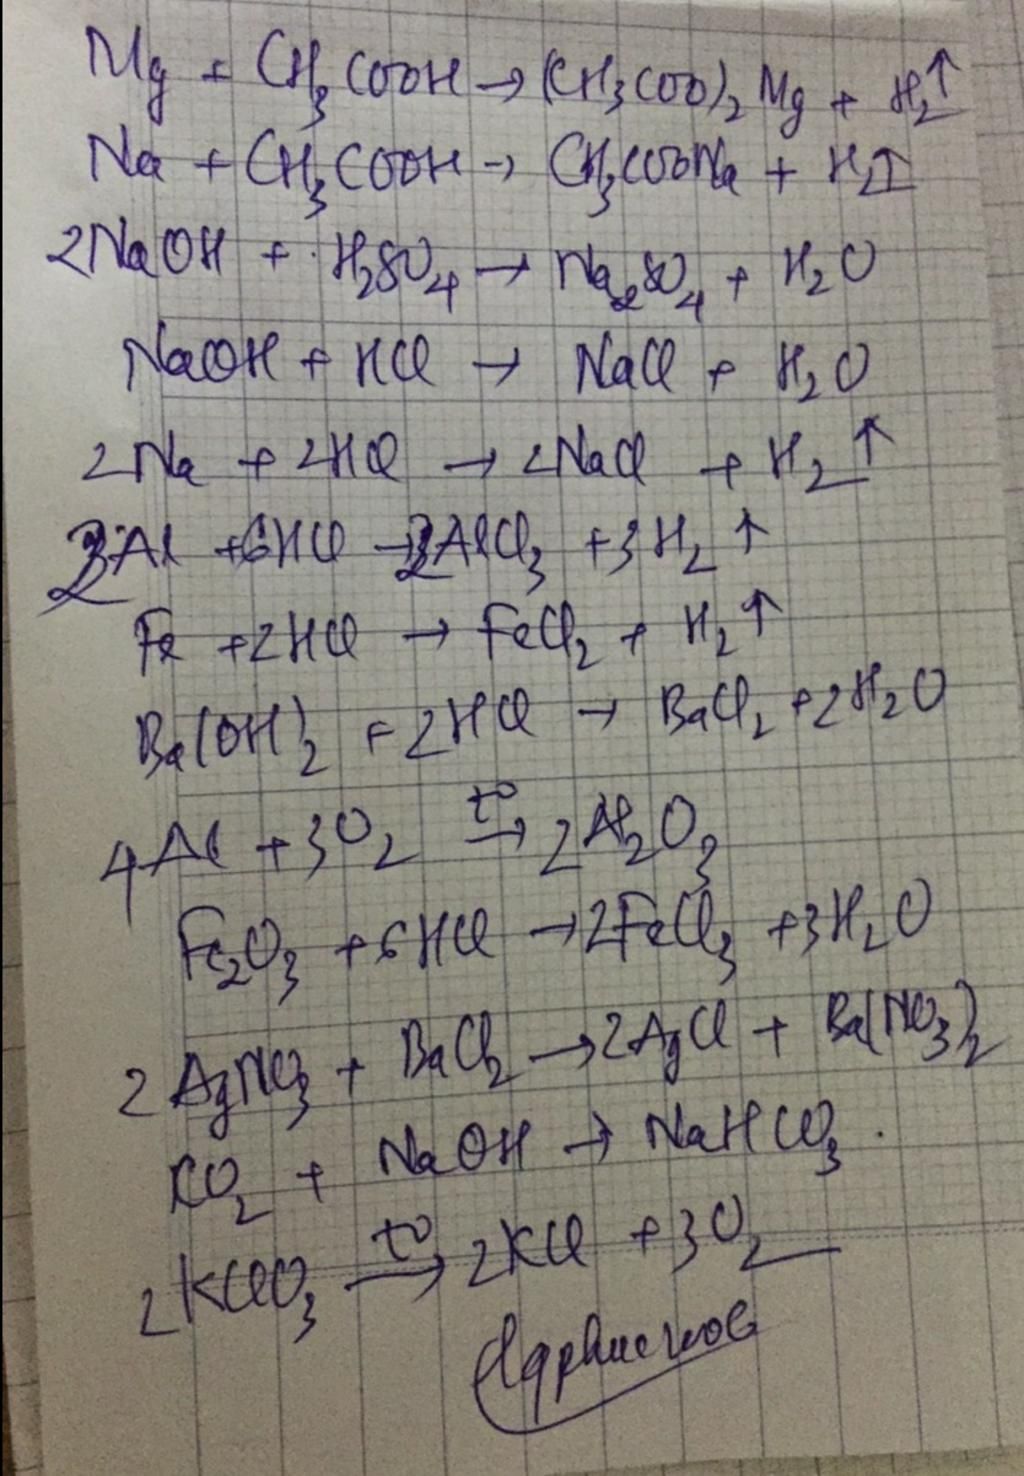 Mg + CH₃COOH → (CH₃COO)₂Mg + H₂↑
Na + CH₃COOH → CH₃COONa + H₂↑
2NaOH + H₂SO₄ → Na₂SO₄ + H₂O
NaOH + HCl → NaCl + H₂O
2Na + 2HCl → 2NaCl + H₂↑
2Al + 6HCl → 2AlCl₃ + 3H₂↑
Fe + 2HCl → FeCl₂ + H₂↑
Ba(OH)₂ + 2HCl → BaCl₂ + 2H₂O
4Al + 3O₂ →t° 2Al₂O₃
Fe₂O₃ + 6HCl → 2FeCl₃ + 3H₂O
2AgNO₃ + BaCl₂ → 2AgCl + Ba(NO₃)₂
CO₂ + NaOH → NaHCO₃.
2KClO₃ →t° 2KCl + 3O₂